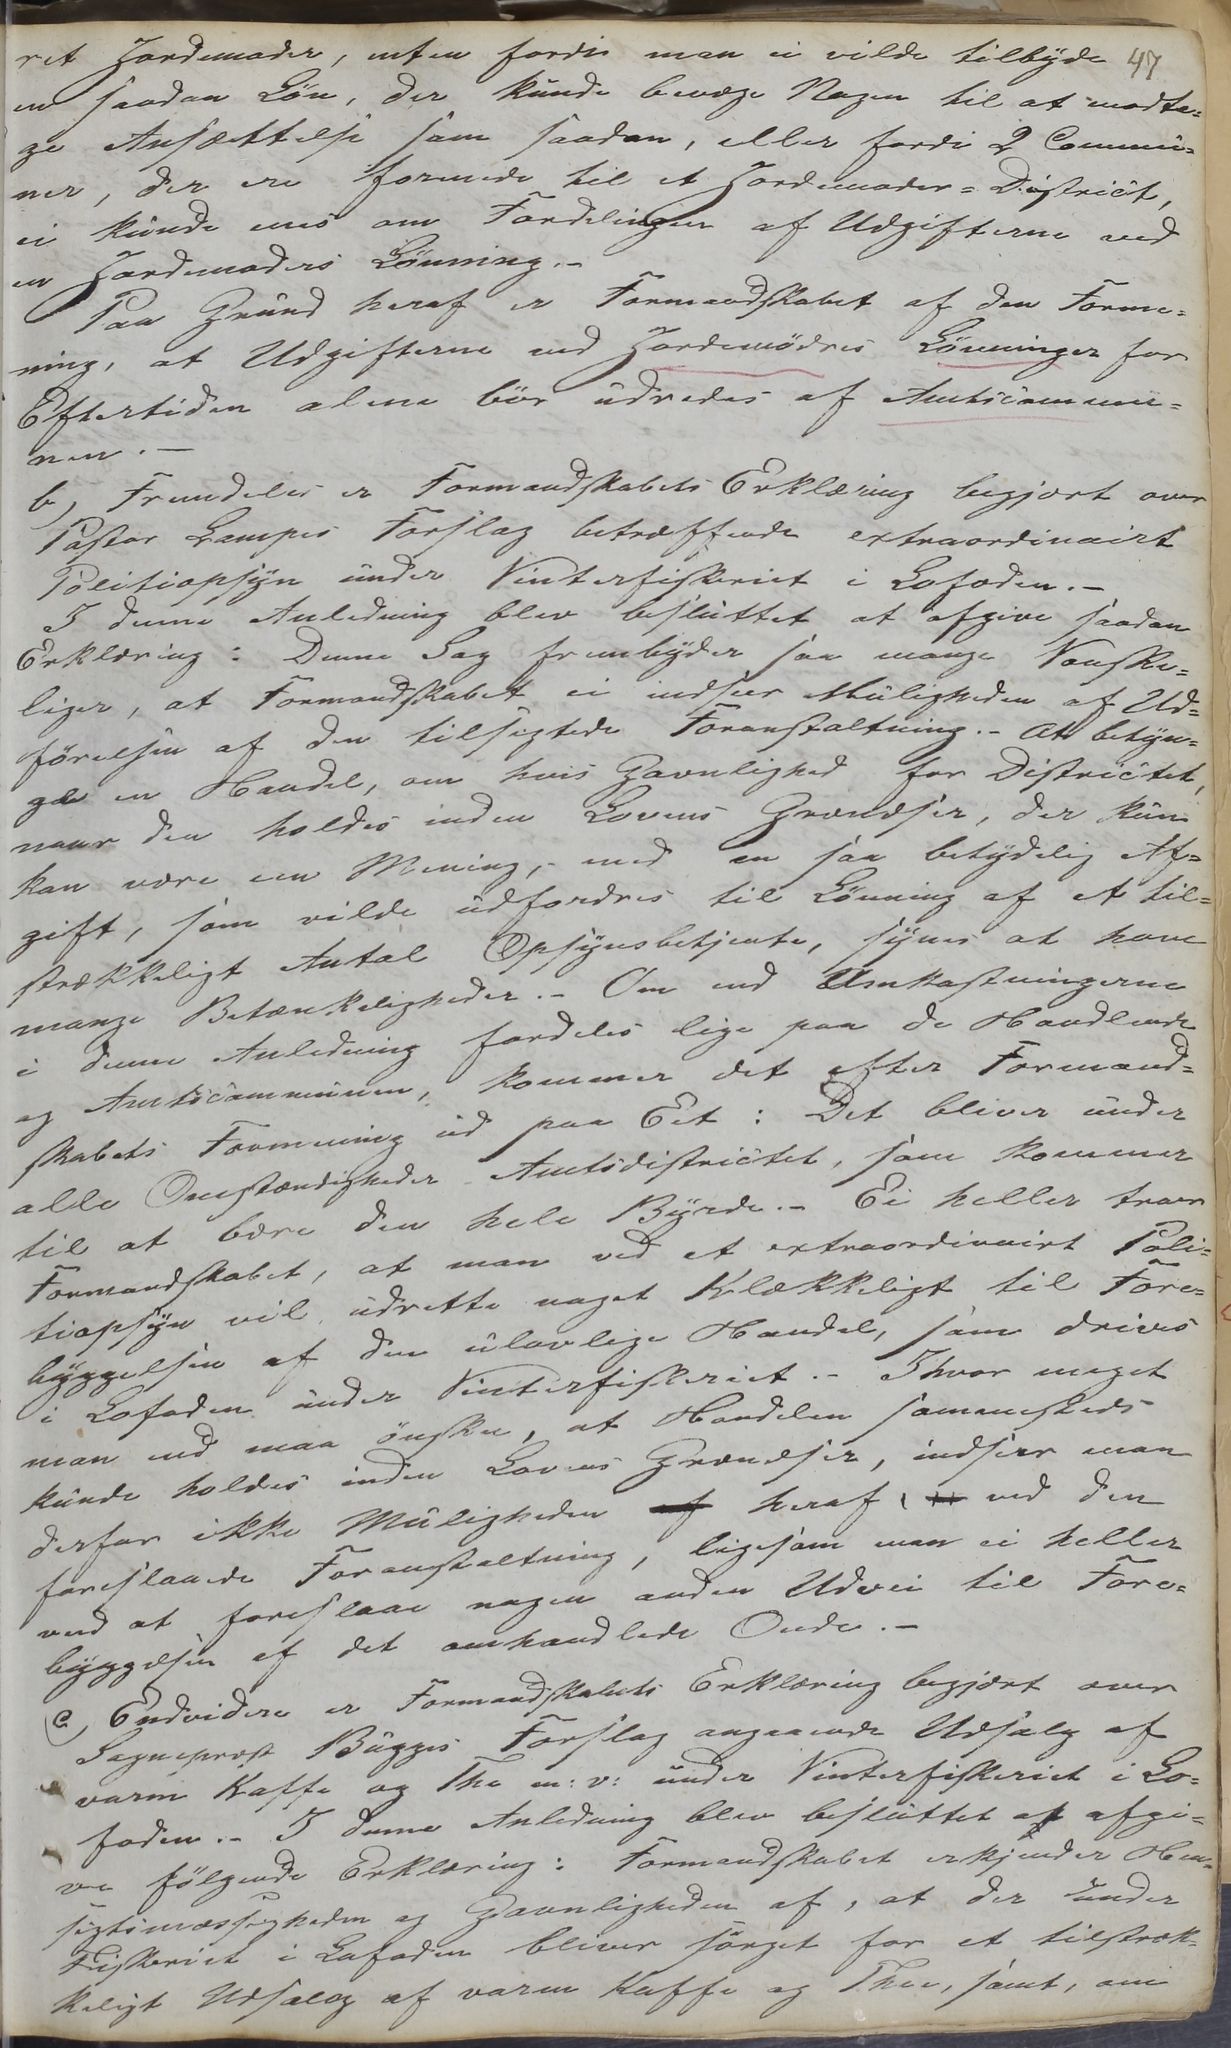 47
ret Jordemoder, enten fordi man ei vilde tilbyde
en saadan Løn, der kunde bevæge Nogen til at modta-
ge Ansættelse som saadan, eller fordi 2 Commu-
ner, der ere forenede til et Jordemoder-District,
ei kunde enes om Fordelingen af Udgifterne ved
en Jordemoders Lønning.-
Paa Grund heraf er Formandskabet af den Forme-
ning, at Udgifterne ved Jordemødres Lønninger for
Eftertiden alene bør udredes af Amtscommu-
nen.-
b, Fremdeles er Formandskabets Erklæring begjært over
Pastor Lampes Forslag betræffende extraordinairt
Politiopsyn under Vinterfiskeriet i Lofoden.-
I denne Anledning blev besluttet at afgive saadan
Erklæring: Denne Sag frembyder saa mange Vanske-
liger, at Formandskabet ei indseer Muligheden af Ud-
førelsen af den tilsigtede Foranstaltning.- At betyn-
ge en Handel, om hvis Gavnlighed for Districtet,
naar den holdes inden Lovens Grændser, der kun
kan være een Mening,- med en saa betydelig Af-
gift, som vilde udfordres til Lønning af et til-
strækkeligt Antal Opsynsbetjente, synes at have
mange Betænkeligheder.- Om end Omkostningerne
i denne Anledning fordeles lige paa de Handlende
og Amtscommunen, kommer det efter Formand-
skabets Formening ud paa Eet: Det bliver under
alle Omstændigheder Amtsdistrictet, som kommer
til at bære den hele Byrde.- Ei heller troer
Formandskabet, at man ved et extraordinairt Poli-
tiopsyn vil udrette noget Klækkeligt til Fore-
byggelsen af den ulovlige Handel, som drives
i Lofoden under Vinterfiskeriet.- Ihvor meget
man end maa ønske, at Handelen sammesteds
kunde holdes inden Lovens Grændser, indseer man
derfor ikke Muligheden af heraf, ved den
foreslaaede Foranstaltning, ligesom man ei heller
veed at foreslaae nogen anden Udvei til Fore-
byggelsen af det omhandlede Onde.-
c, Endvidere er Formandskabets Erklæring begjært over
Sogneprest Bugges Forslag angaaende Udsalg af
varm Kaffe og The m: v: under Vinterfiskeriet i Lo-
foden.- I denne Anledning blev besluttet at afgi-
ve følgende Erklæring: Formandskabet erkjender Hen-
sigtsmæssigheden og Gavnligheden af, at der under
Fiskeriet i Lofoden bliver sørget for et tilstræk-
keligt Udsalg af varm Kaffe og Thee, samt, om